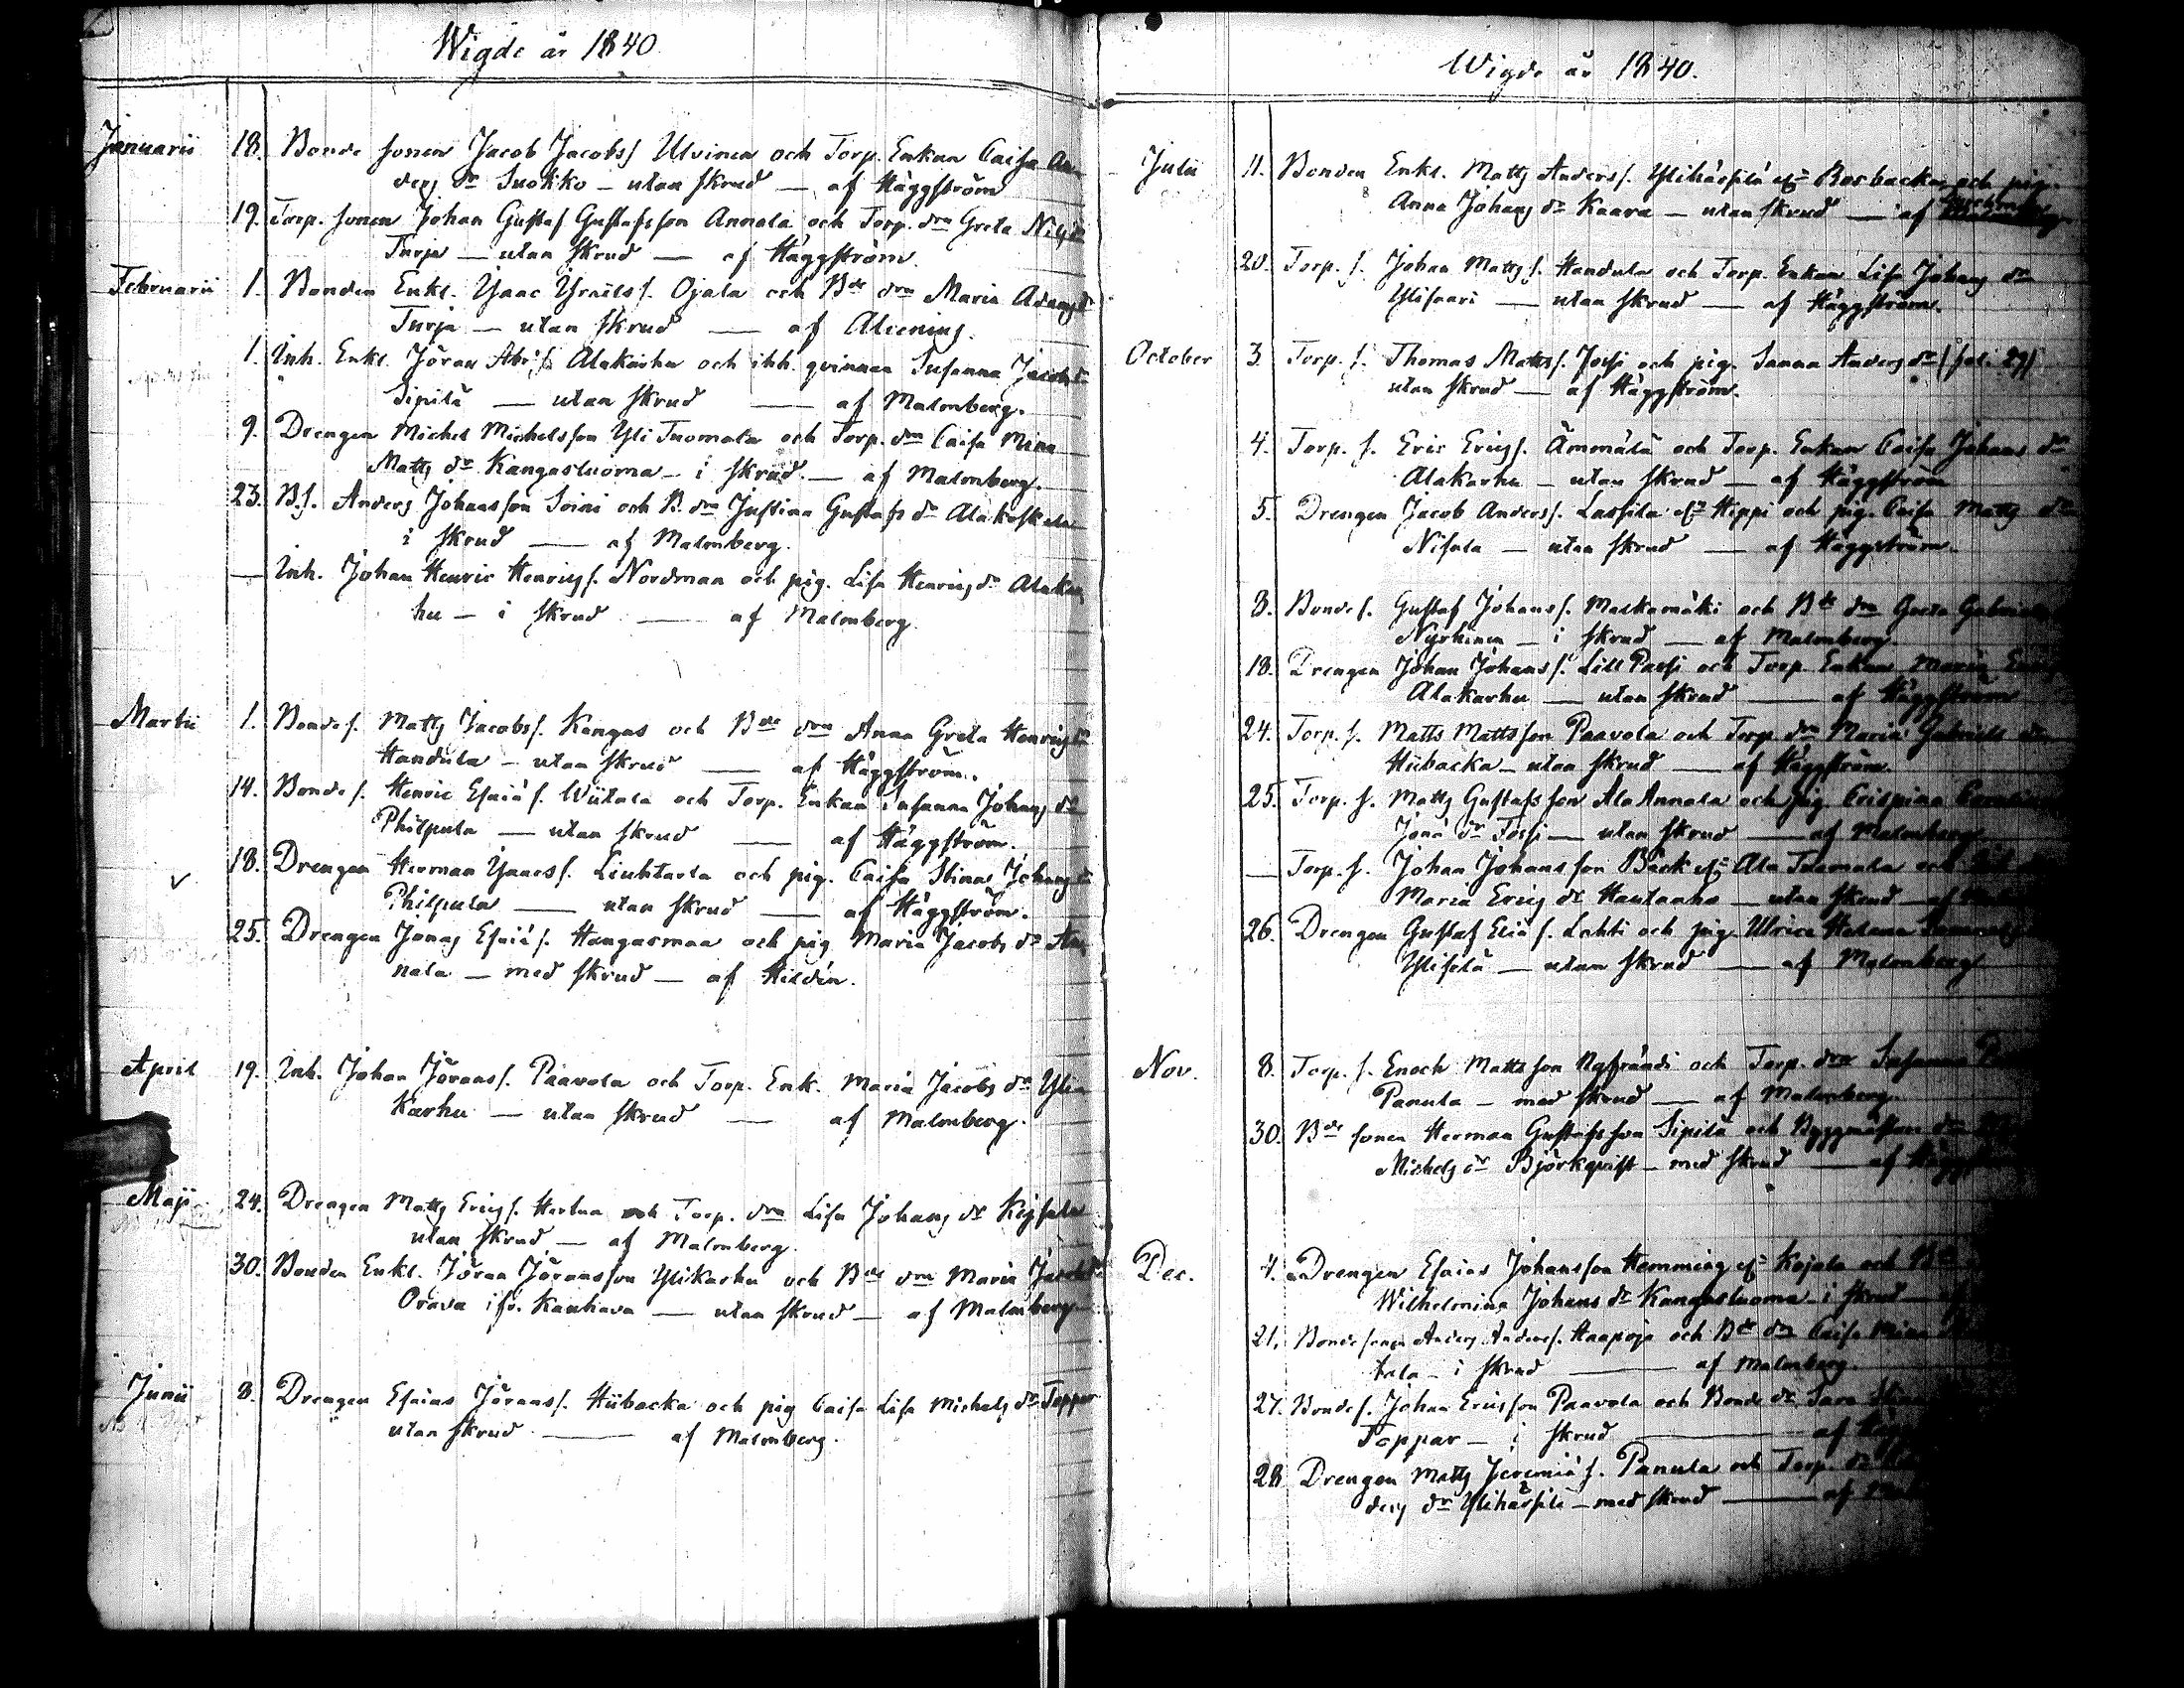 Wigde år 1840.
Januarii 18. Bonde sonen Jacob Jacobss Ulvinen och Torp. Enkan Caisa An-
ders dr Suokko — utan skrud — af Häggström
19. Torp. sonen Johan Gustaf Gustafsson Annala och Torp. drn Greta Nilsdr
Turja — utan skrud — af Häggström.
Februarii 1. Bonden Enkl. Isaac Israels s. Ojala och Bde drn Maria Adamsdr
Turja — utan skrud — af Alcenius.
1. Inh. Enkl. Jöran Abr. s. Alakarhu och inh. qvinnan Susanna Jacobsdr
Sipilä — utan skrud — af Malmberg.
9. Drengen Michel Michelsson Yli Tuomala och Torp. drn Caisa Mina
Matts dr Kangasluoma — i skrud — af Malmberg.
23. B.s. Anders Johansson Soini och B. drn Justina Gustafs dr Alakoskela
i skrud — af Malmberg.
— Inh. Johan Henric Henrics s. Nordman och pig. Lisa Henrics dr Alakar-
hu — i skrud — af Malmberg.
Martii 1. Bonde s. Matts Jacobs s. Kangas och Bde drn Anna Greta Henricsdr
Handula — utan skrud — af Häggström.
14. Bonde s. Henric Esaiæ s. Wiitala och Torp. Enkan Susanna Johans dr
Philpula — utan skrud — af Häggström.
18. Drengen Herman Isaacs s. Liuhtarla och pig. Caisa Stina Johansdr
Philpula — utan skrud — af Häggström.
25. Drengen Jonas Esaiæ s. Hangasmaa och pig Maria Jacobs dr An-
nala — med skrud — af Hildén.
April 19. Inh. Johan Jörans s. Paavola och Torp. Enk. Maria Jacobs dr Yli-
Karhu — utan skrud — af Malmberg.
Maji 24. Drengen Matts Erics s. Hertua och Torp. drn Lisa Johans dr
utan skrud — af Malmberg.
30. Bonden Enkl. Jöran Jöransson Ylikarhu och Bde drn Maria Jacobsdr
Orava ifr. Kauhava — utan skrud — af Malmberg
Junii 8. Drengen Esaias Jörans s. Hiibacka och pig Caisa Lisa Michels dr Toppar
utan skrud — af Malmberg.
Wigde år 1840.
Julii 11. Bonden Enkl. Matts Anders s. Ylihärsilä ell. Rosbacka och pig.
Anna Johans dr Kaara — utan skrud — af
20. Torp. s. Johan Matts s. Handula och Torp. Enkan Lisa Johans dr
Ylisaari — utan skrud — af Häggström.
October 3. Torp. s. Thomas Matts s. Jossi och pig. Sanna Anders dr (fol. 27)
utan skrud — af Häggström.
4. Torp. s. Eric Erics s. Ämmälä och Torp. Enkan Caisa Johans dr
Alakarhu — utan skrud — af Häggström
5. Drengen Jacob Anders s. Lassila ell. Hippi och pig. Caisa Matts dr
Nisula — utan skrud — af Häggström.
8. Bonde s. Gustaf Johans s. Maskamäki och Bde drn Greta Gabriels
Nyrhinen — i skrud — af Malmberg.
18. Drengen Johan Johans s. Lill Passi och Torp. Enkan Maria
Alakarhu — utan skrud — af Häggström
24. Torp. s. Matts Mattsson Paavola och Torp. drn Maria Gabriels dr
Hiibacka — utan skrud — af Häggström.
25. Torp. s. Matts Gustafsson Ala Annala och pig. Crispina
Jonæ dr Torsi — utan skrud — af Malmberg
— Torp. s. Johan Johansson Bäck ell. Ala Tuomala och
Maria Erics dr Hautanha — utan skrud — af
26. Drengen Gustaf Eliæ s. Lahti och pig. Ulrica Helena
Ylisilä — utan skrud — af Malmberg
Nov. 8. Torp. s. Enoch Mattsson Nyfrändi och Torp. drn Susanna
Panula — med skrud — af Malmberg.
30. Bde sonen Herman Gustafsson Sipilä och Byggmästare drn
Michels dr Björkqvist — med skrud — af
Dec. 4. Drengen Esaias Johansson Hemming ell. Kojola och
Wilhelmina Johans dr Kangasluoma — i skrud
21. Bonde sonen Anders Anders s. Haapoja och Bde drn Caisa Mina
tala — i skrud — af Malmberg.
27. Bonde s. Johan Ericsson Paavola och Bonde dr Sara
Toppar — i skrud — af
28 Drengen Matts Jeremiæ s. Panula och Torp. dr
ders dr Ylihärsilä — med skrud — af